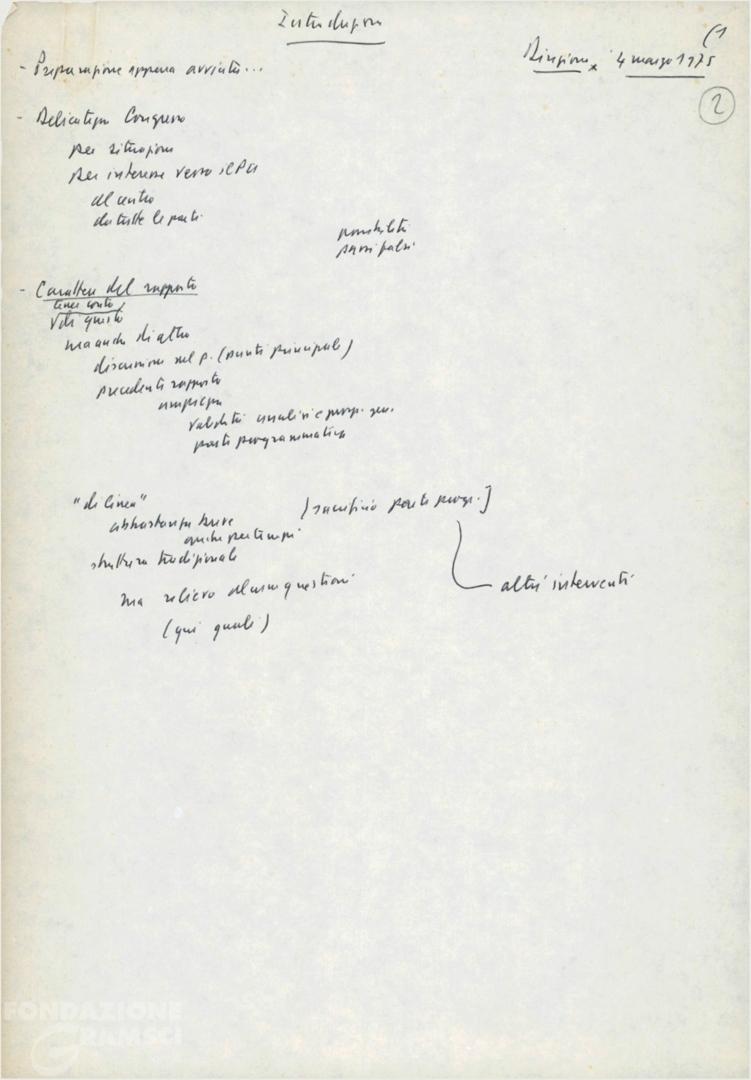 Introduzione
(1
Direzione 4 marzo 1975
2
- Preparazione appena avviata...
- Delicatezza Congresso
per situazione
per interesse verso il PCI
al centro
da tutte le parti
possibilità
passi falsi
- Carattere del rapporto
tener conto
Vdr questo
ma anche di altro
discussione nel p. (punti principali)
precedente rapporto
ampiezza
validità analisi e prosp. gen.
parte programmatica
"di linea"
abbastanza breve
(sacrificio parte progr.]
anche per tempi
struttura tradizionale
ma rilievo alcune questioni
altri interventi
(qui quali)
FONDAZIONE
GRAMSCI